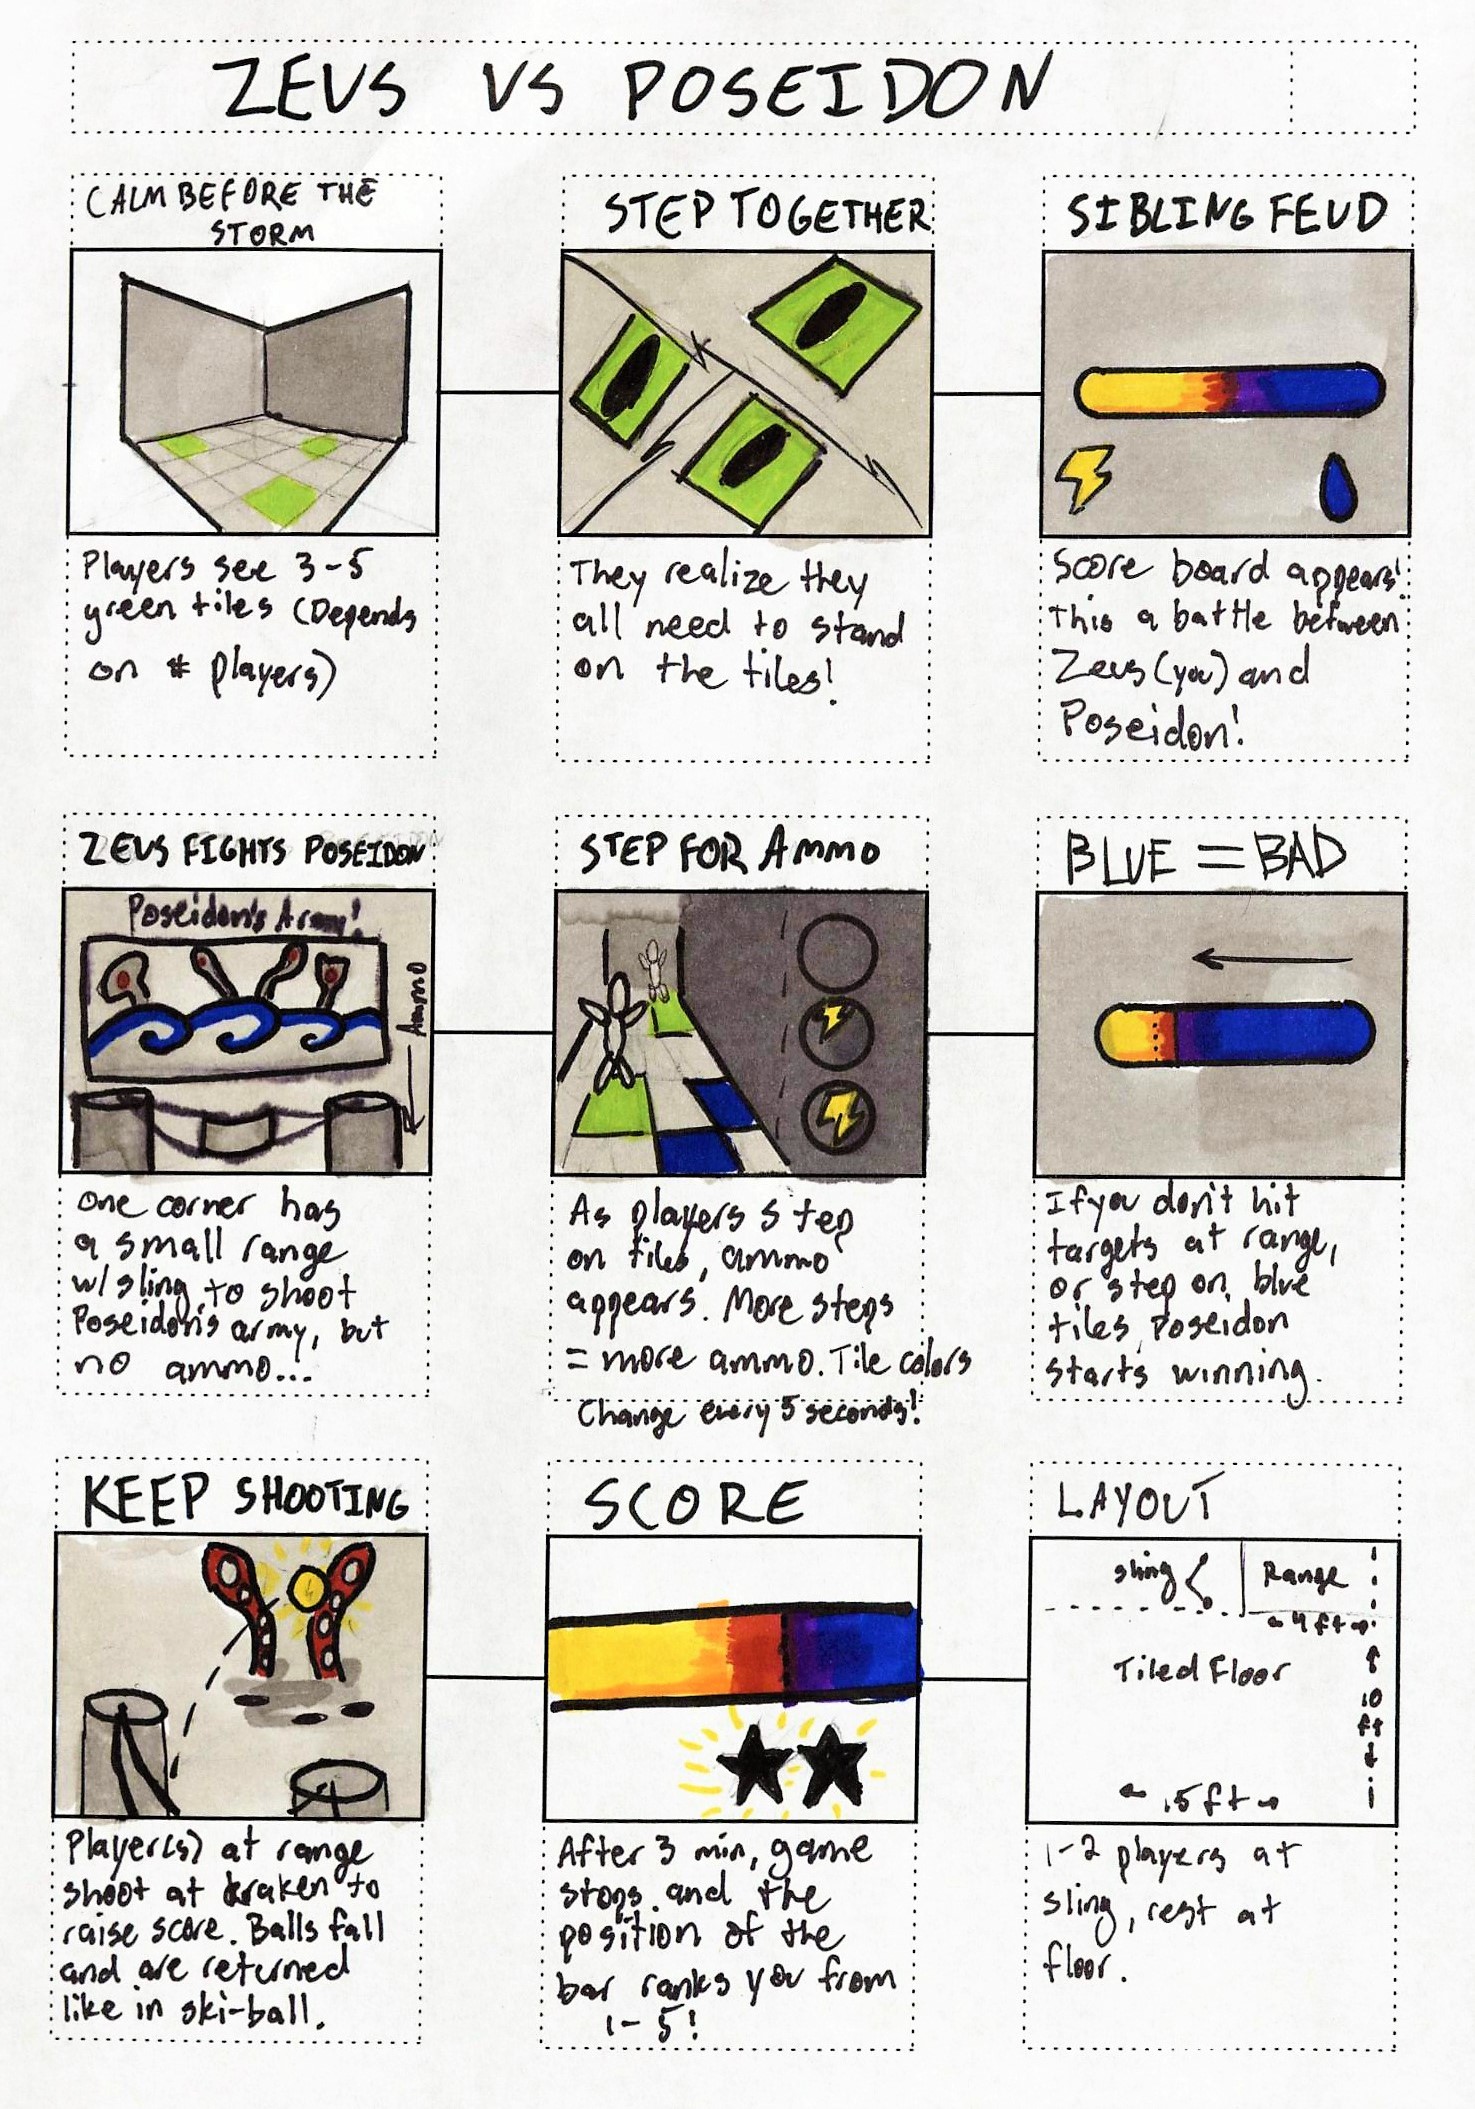 ZEUS VS POSEIDON
CALM BEFORE THE
STORM
Players see 3-5
green tiles (Depends
on # players)
STEP TOGETHER
They realize they
all need to stand
on the tiles!
SIBLING FEUD
Score board appears!
This a battle between
Zeus (you) and
Poseidon!
ZEUS FIGHTS POSEIDON
Poseidon's Army!
Ammo
One corner has
a small range
w/ sling to shoot
Poseidon's army, but
no ammo...
STEP FOR AMMO
As players step
on tiles, ammo
appears. More steps
= more ammo. Tile colors
Change every 5 seconds!
BLUE = BAD
If you don't hit
targets at range,
or step on blue
tiles, Poseidon
starts winning.
KEEP SHOOTING
Player(s) at range
shoot at kraken to
raise score. Balls fall
and are returned
like in ski-ball.
SCORE
After 3 min, game
stops and the
position of the
bar ranks you from
1-5!
LAYOUT
sling
Range
4 ft
Tiled Floor
10
ft
15 ft
1-2 players at
sling, rest at
floor.